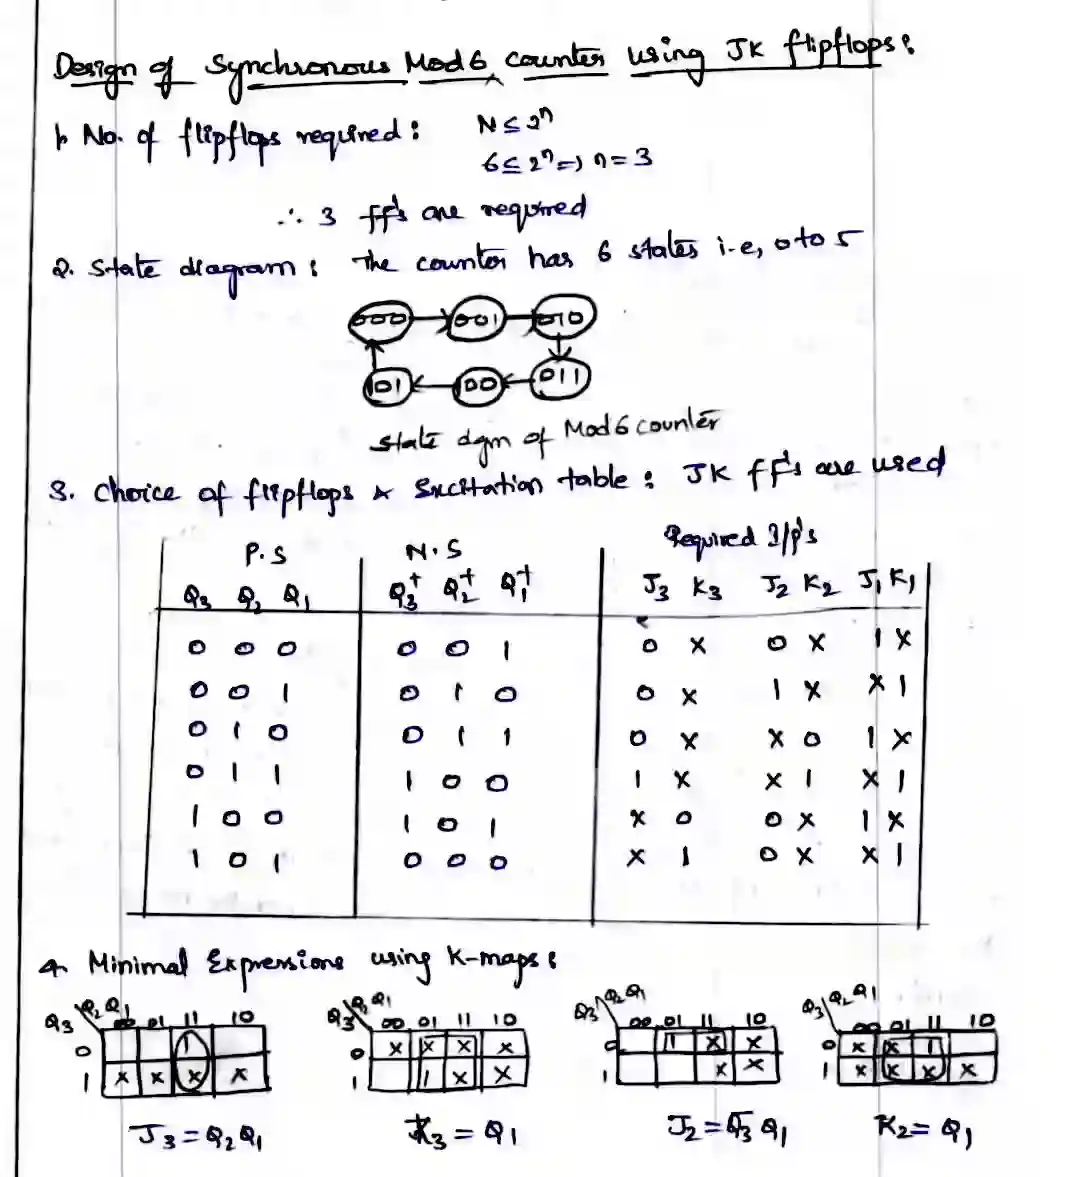 Design of Synchronous Mod 6 counter using JK flipflops:
1. No. of flipflops required: N ≤ 2^n
6 ≤ 2^n => n = 3
∴ 3 ff's are required
2. State diagram: The counter has 6 states i.e, 0 to 5
000 001 010
101 100 011
State dgm of Mod 6 counter
3. Choice of flipflops & Excitation table: JK ff's are used
P.S N.S Required I/p's
Q3 Q2 Q1 Q3+ Q2+ Q1+ J3 K3 J2 K2 J1 K1
0 0 0 0 0 1 0 x 0 x 1 x
0 0 1 0 1 0 0 x 1 x x 1
0 1 0 0 1 1 0 x x 0 1 x
0 1 1 1 0 0 1 x x 1 x 1
1 0 0 1 0 1 x 0 0 x 1 x
1 0 1 0 0 0 x 1 0 x x 1
4. Minimal Expressions using K-maps:
Q3 Q2Q1 Q3 Q2Q1 Q3 Q2Q1 Q3 Q2Q1
00 01 11 10 00 01 11 10 00 01 11 10 00 01 11 10
0 1 0 x x x x 0 1 x x 0 x x 1
1 x x x x 1 1 x x 1 x x 1 x x x x
J3 = Q2Q1 K3 = Q1 J2 = Q̅3 Q1 K2 = Q1